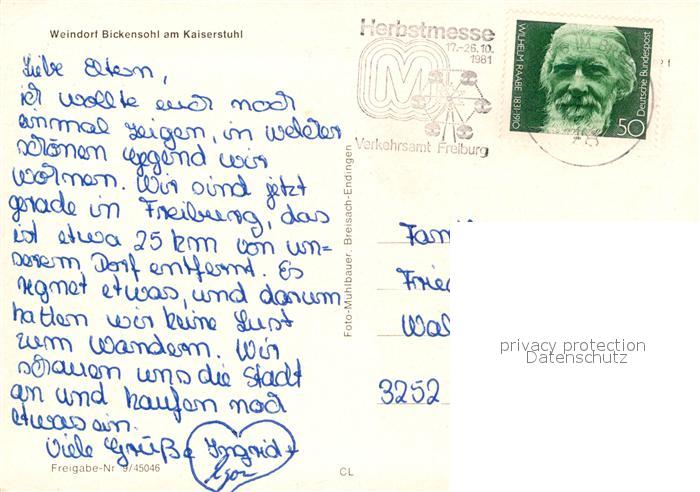 Weindorf Bickensohl am Kaiserstuhl
Liebe Eltern,
ich wollte euch noch
einmal zeigen, in welcher
schönen Gegend wir
wohnen. Wir sind jetzt
gerade in Freiburg, das
ist etwa 25 km von un=
serem Dorf entfernt. Es
regnet etwas, und darum
hatten wir keine Lust
zum wandern. Wir
schauen uns die Stadt
an und kaufen noch
etwas ein.
Viele Grüße Ingrid +
Igor
Freigabe-Nr 9/45046
CL
Foto-Muhlbauer, Breisach-Endingen
Herbstmesse
17.-26.10.
1981
M
Verkehrsamt Freiburg
WILHELM RAABE 1831-1910
Deutsche Bundespost
50
Fam
Fried
Wal
3252
privacy protection
Datenschutz